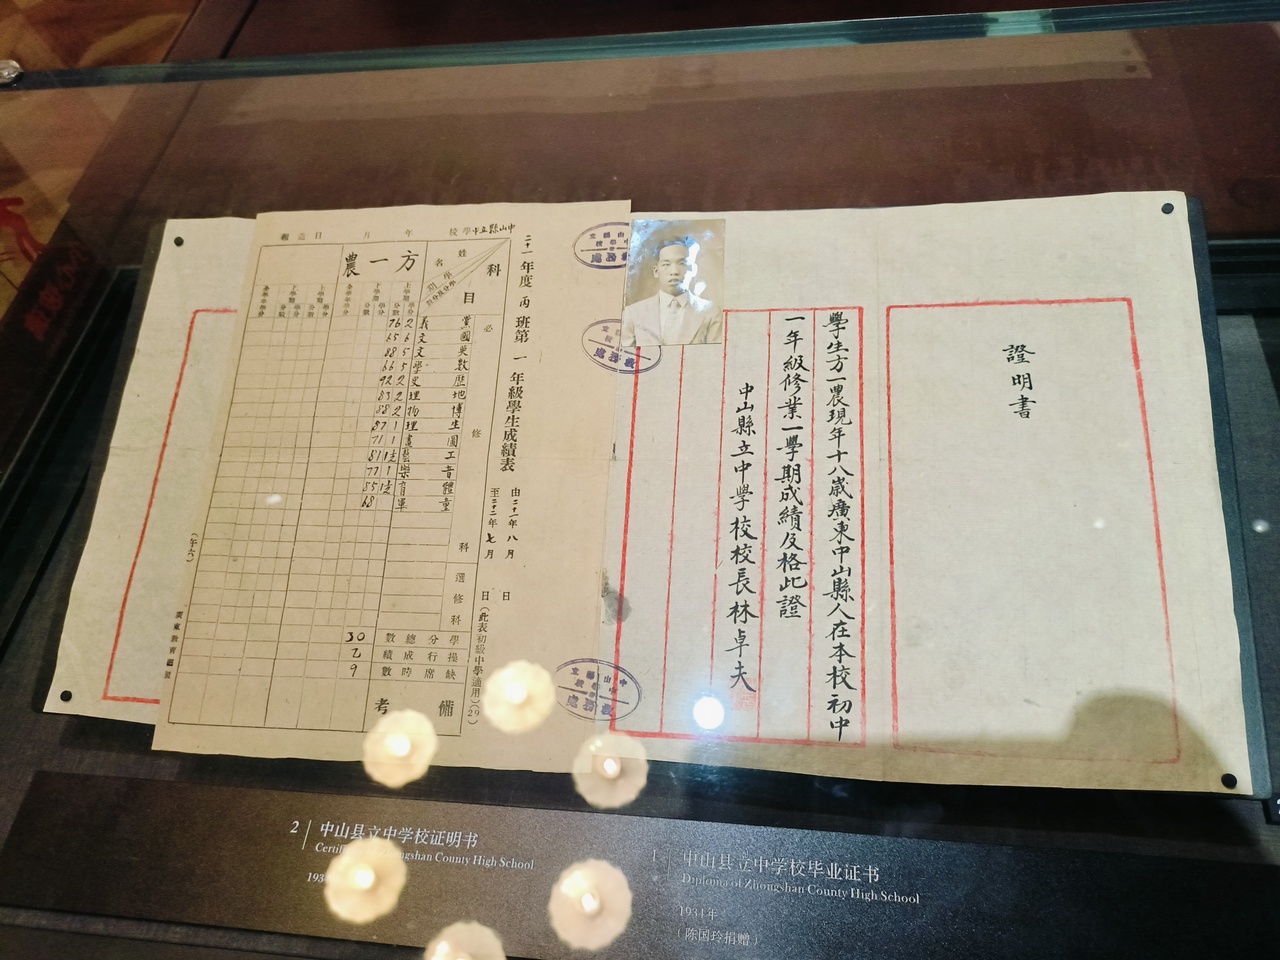 證明書
學生方一農現年十八歲廣東中山縣人在本校初中
一年級修業一學期成績及格此證
中山縣立中學校校長林卓夫
中山縣立中學校
教務處
二十一年度丙班第一年級學生成績表
由二十一年八月 日
至二十二年七月 日
(此表初級中學適用)(29)
中山縣立中學校 年 月 日造報
姓名
科目
方一農
必修科
黨義 2 76
國文 6 65
英文 5 88
數學 5 66
歷史 2 92
地理 2 83
博物 2 88
生理 1 87
圖畫 1 71
工藝 81
音樂 1 77
體育 85
童軍 68
選修科
學分總數 30
操行成績 乙
缺席時數 9
備考
2 中山县立中学校证明书
Zhongshan County High School
1 中山县立中学校毕业证书
Diploma of Zhongshan County High School
1934年
(陈国玲捐赠)